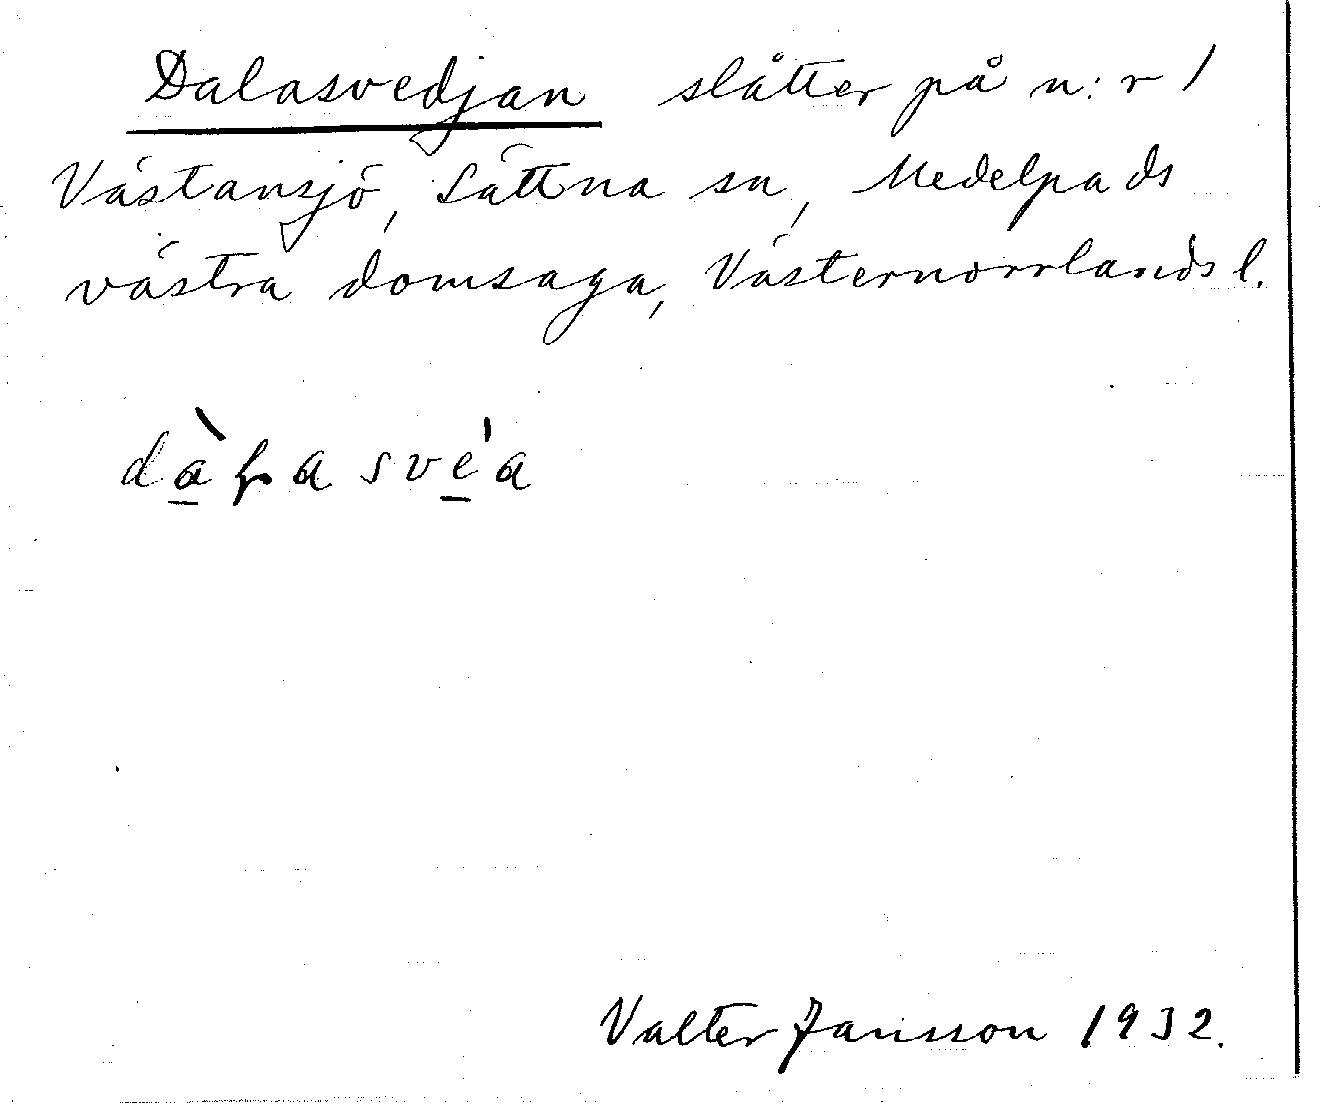 Dalasvedjan slåtter på n:r 1
Västansjö, Sättna sn, Medelpads
västra domsaga, Västernorrlands l.
Valter Jansson 1932.